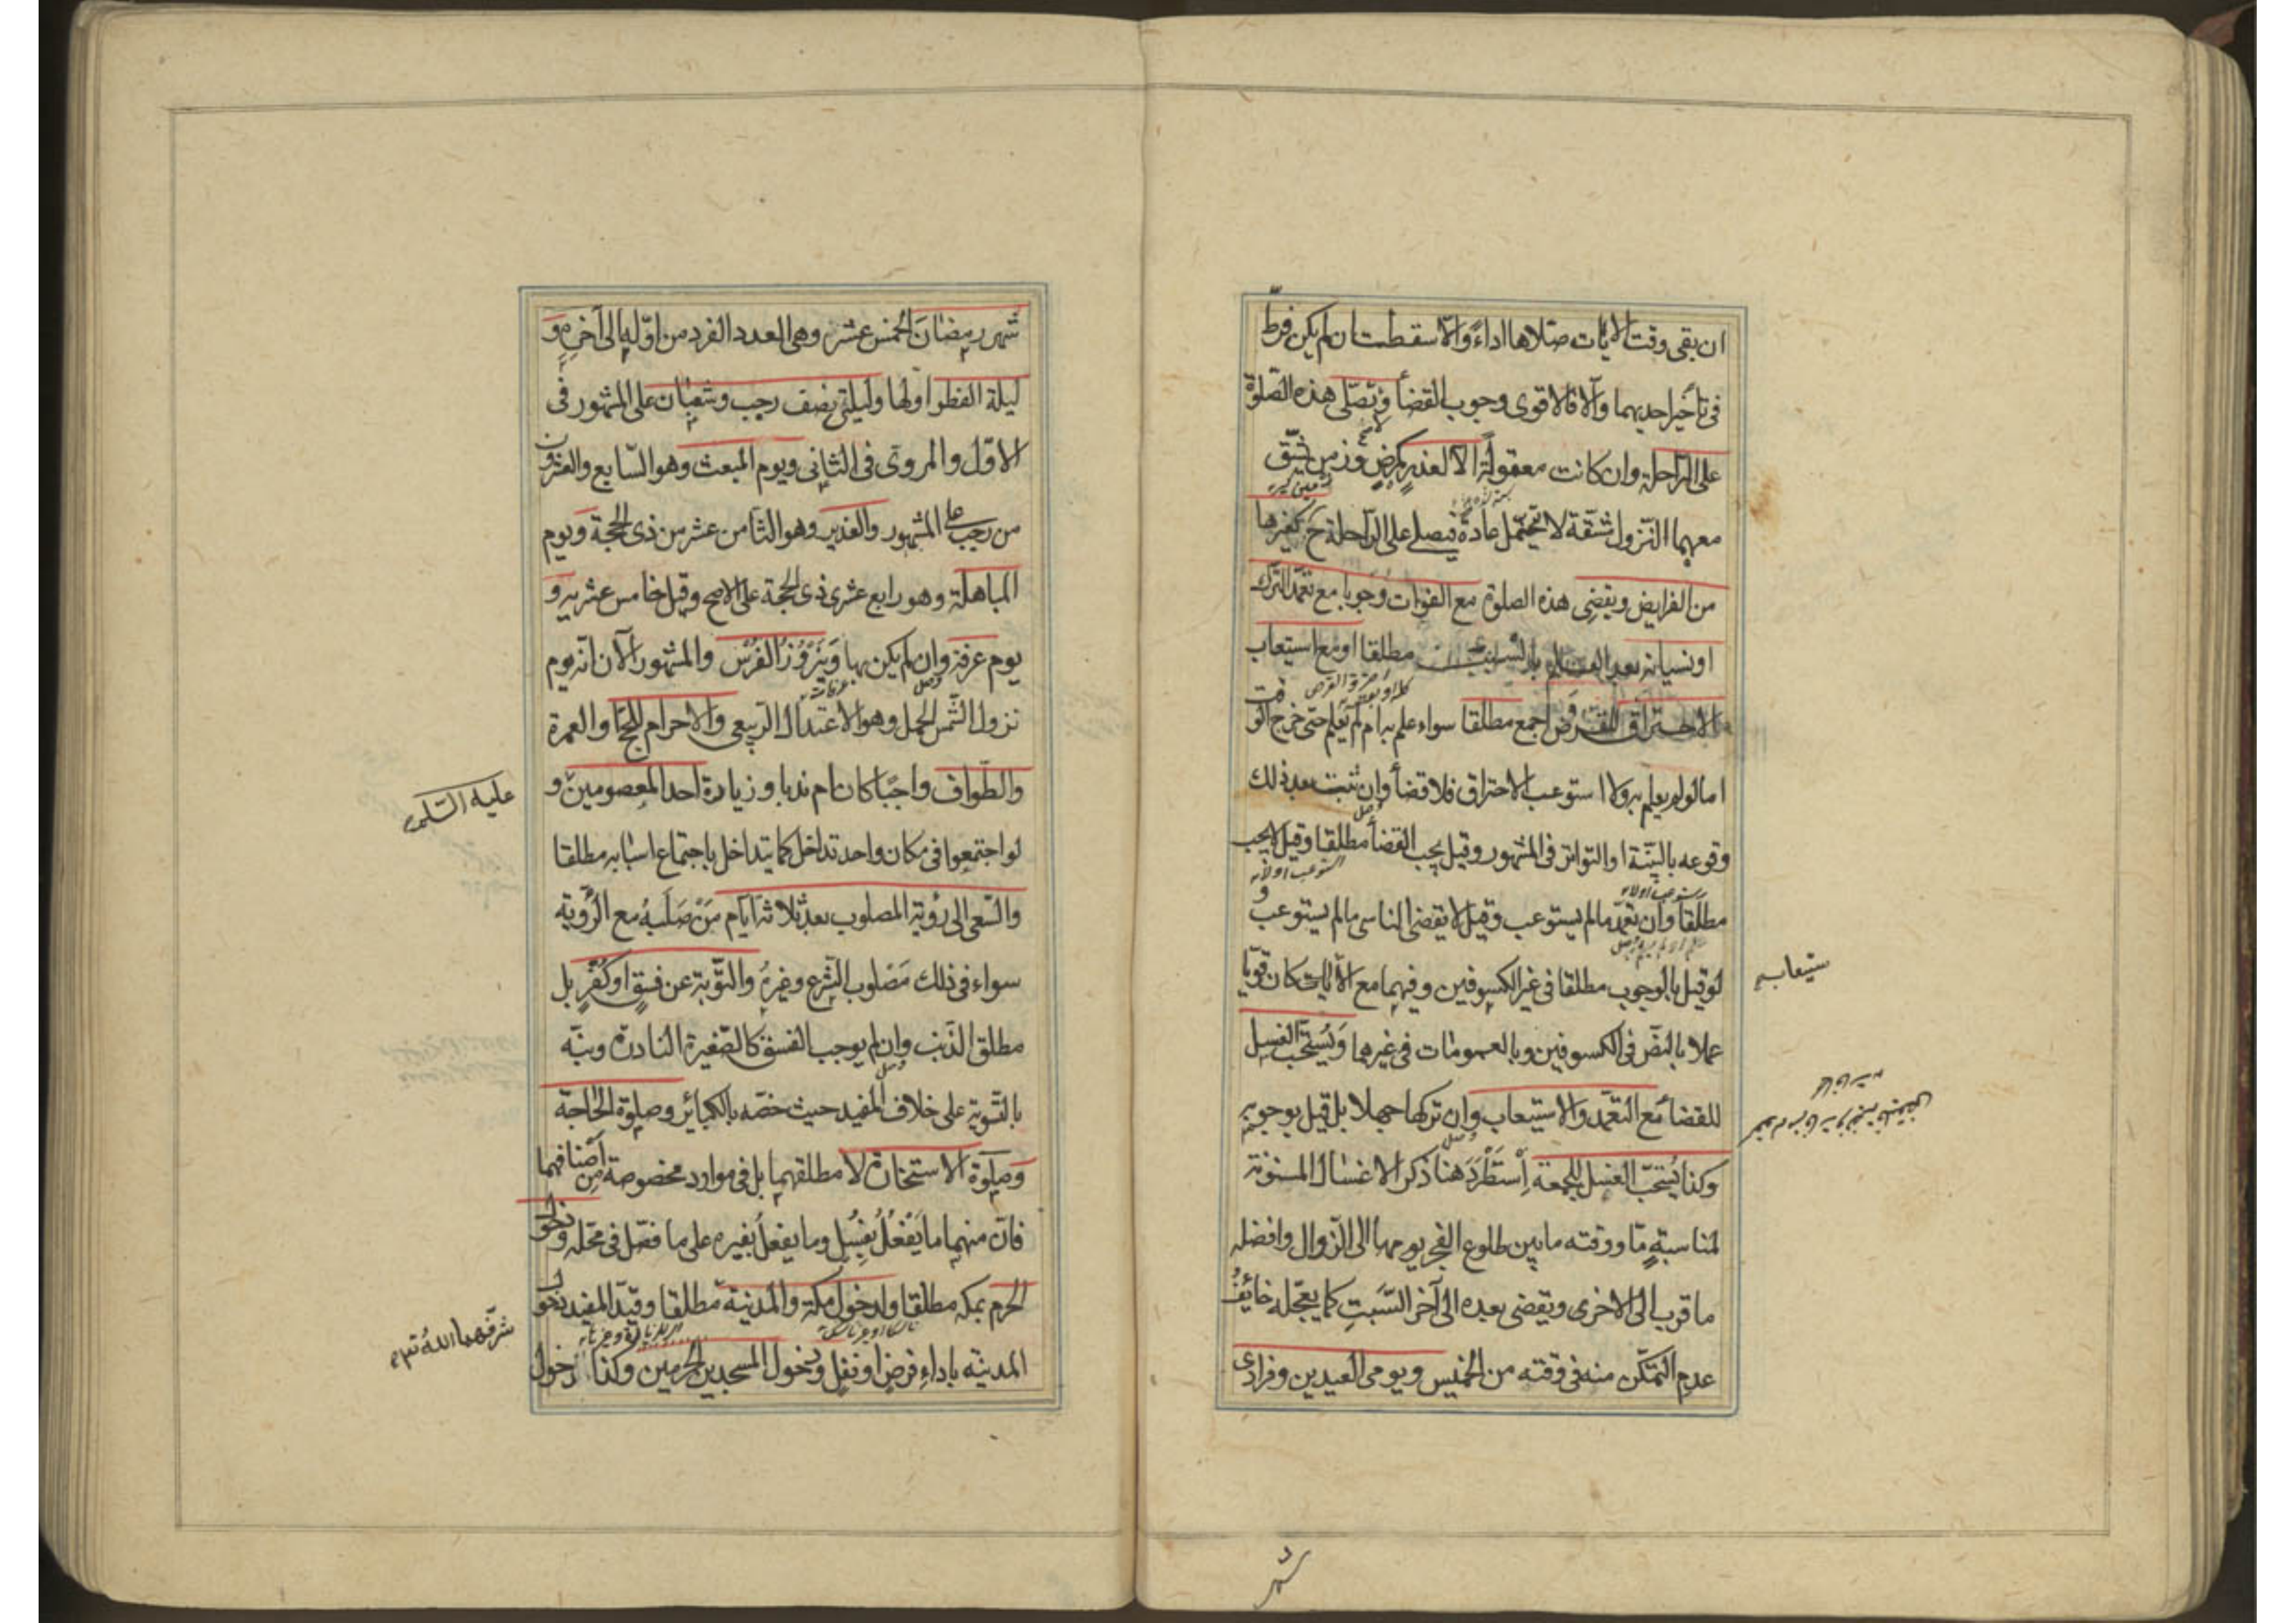 ان بقى وقت الآيات صلاها اداءً والّا سقطت ان لم يكن فرّط
فى تأخير احديهما والّا فالاقوى وجوب القضأ ولا تصلّى هذه الصّلوة
على الرّاحلة وان كانت معقولةً الّا لعذرٍ كمرضٍ وزمنٍ يشقّ
معهما النّزول مشقّة لا تتحمّل عادة فيصلى على الرّاحلة ح كغيرها
من الفرايض ويقضى هذه الصلوة مع الفوات وجوبا مع تعمّد الترك
او نسيانه بعد العلم بالسبب مطلقا او مع استيعاب
الاحتراق للقرص اجمع مطلقا سواء علم به ام لم يعلم حتى خرج الوقت
اما لو لم يعلم به ولا استوعب الاحتراق فلا قضأ وان ثبت بعد ذلك
وقوعه بالبيّنة او التواتر فى المشهور وقيل يجب القضأ مطلقا وقيل لا يجب
مطلقا وان تعمّد ما لم يستوعب وقيل لا يقضى الناسى ما لم يستوعب و
لو قيل بالوجوب مطلقا فى غير الكسوفين وفيهما مع الا كان قويّا
ستيعاب
عملا بالنصّ فى الكسوفين وبالعمومات فى غيرهما ويُستحبّ الغسل
للقضأ مع التعمّد والاستيعاب وان تركها جهلا بل قيل بوجوبه
وكذا يُستحبّ الغسل للجمعة اِسْتَطْرَدَ هنا ذكر الاغسال المسنونة
لمناسبةٍ مّا ووقته ما بين طلوع الفجر يومها الى الزّوال وافضله
ما قرب الى الاخرى ويقضى بعده الى آخر السّبت كما يعجّله خائفُ
عدم التمكّن منه فى وقته من الخميس ويومى العيدين وفرادى
شهر
شهر رمضانَ الخمس عشرة وهى العدد الفرد من اوّله الى آخره و
ليلة الفطر اولها وليلتى نصف رجب وشعبان على المشهور فى
الاوّل والمروىّ فى الثانى ويوم المبعث وهو السّابع والعشرون
من رجب على المشهور والغدير وهو الثامن عشر من ذى الحجة ويوم
المباهلة وهو رابع عشرى ذى الحجة على الاصح وقيل خامس عشريه و
يوم عرفة وان لم يكن بها ونَيْرُوزُ الفُرْس والمشهور الآن انه يوم
نزول الشّمس الحمل وهو الاعتدال الرّبيعى والاحرام للحجّ او العمرة
والطّواف واجبًا كان ام ندبا وزيارة احد المعصومين و
عليه السّلم
لو اجتمعوا فى مكان واحد تداخل كما يتداخل باجتماع اسبابه مطلقا
والسّعى الى رؤية المصلوب بعد ثلاثة ايّام مَنْ صَلَبهُ مع الرّؤية
سواء فى ذلك مَصْلوب الشّرع وغيرهُ والتّوبة عن فسقٍ او كُفْرٍ بل
مطلق الذّنب وان لم يوجب الفسق كالصّغيرة النادرة ونبّه
بالتّسوية على خلاف المفيد حيث خصّه بالكبائر وصلوة الحاجة
وصلوة الاستخارة لا مطلقهما بل فى موارد مخصوصة من اصنافهما
فانّ منهما ما يُفْعَلُ بغُسلٍ وما يفعل بغيره على ما فصّل فى محلّه ودخول
الحرم بمكة مطلقا ولدخول مكّة والمدينة مطلقا وقيّد المفيد دخول
شرّفهما اللهُ تعه
المدينة باداءِ فرضٍ او نفلٍ ودخول المسجدين الحرمين وكذا دخول